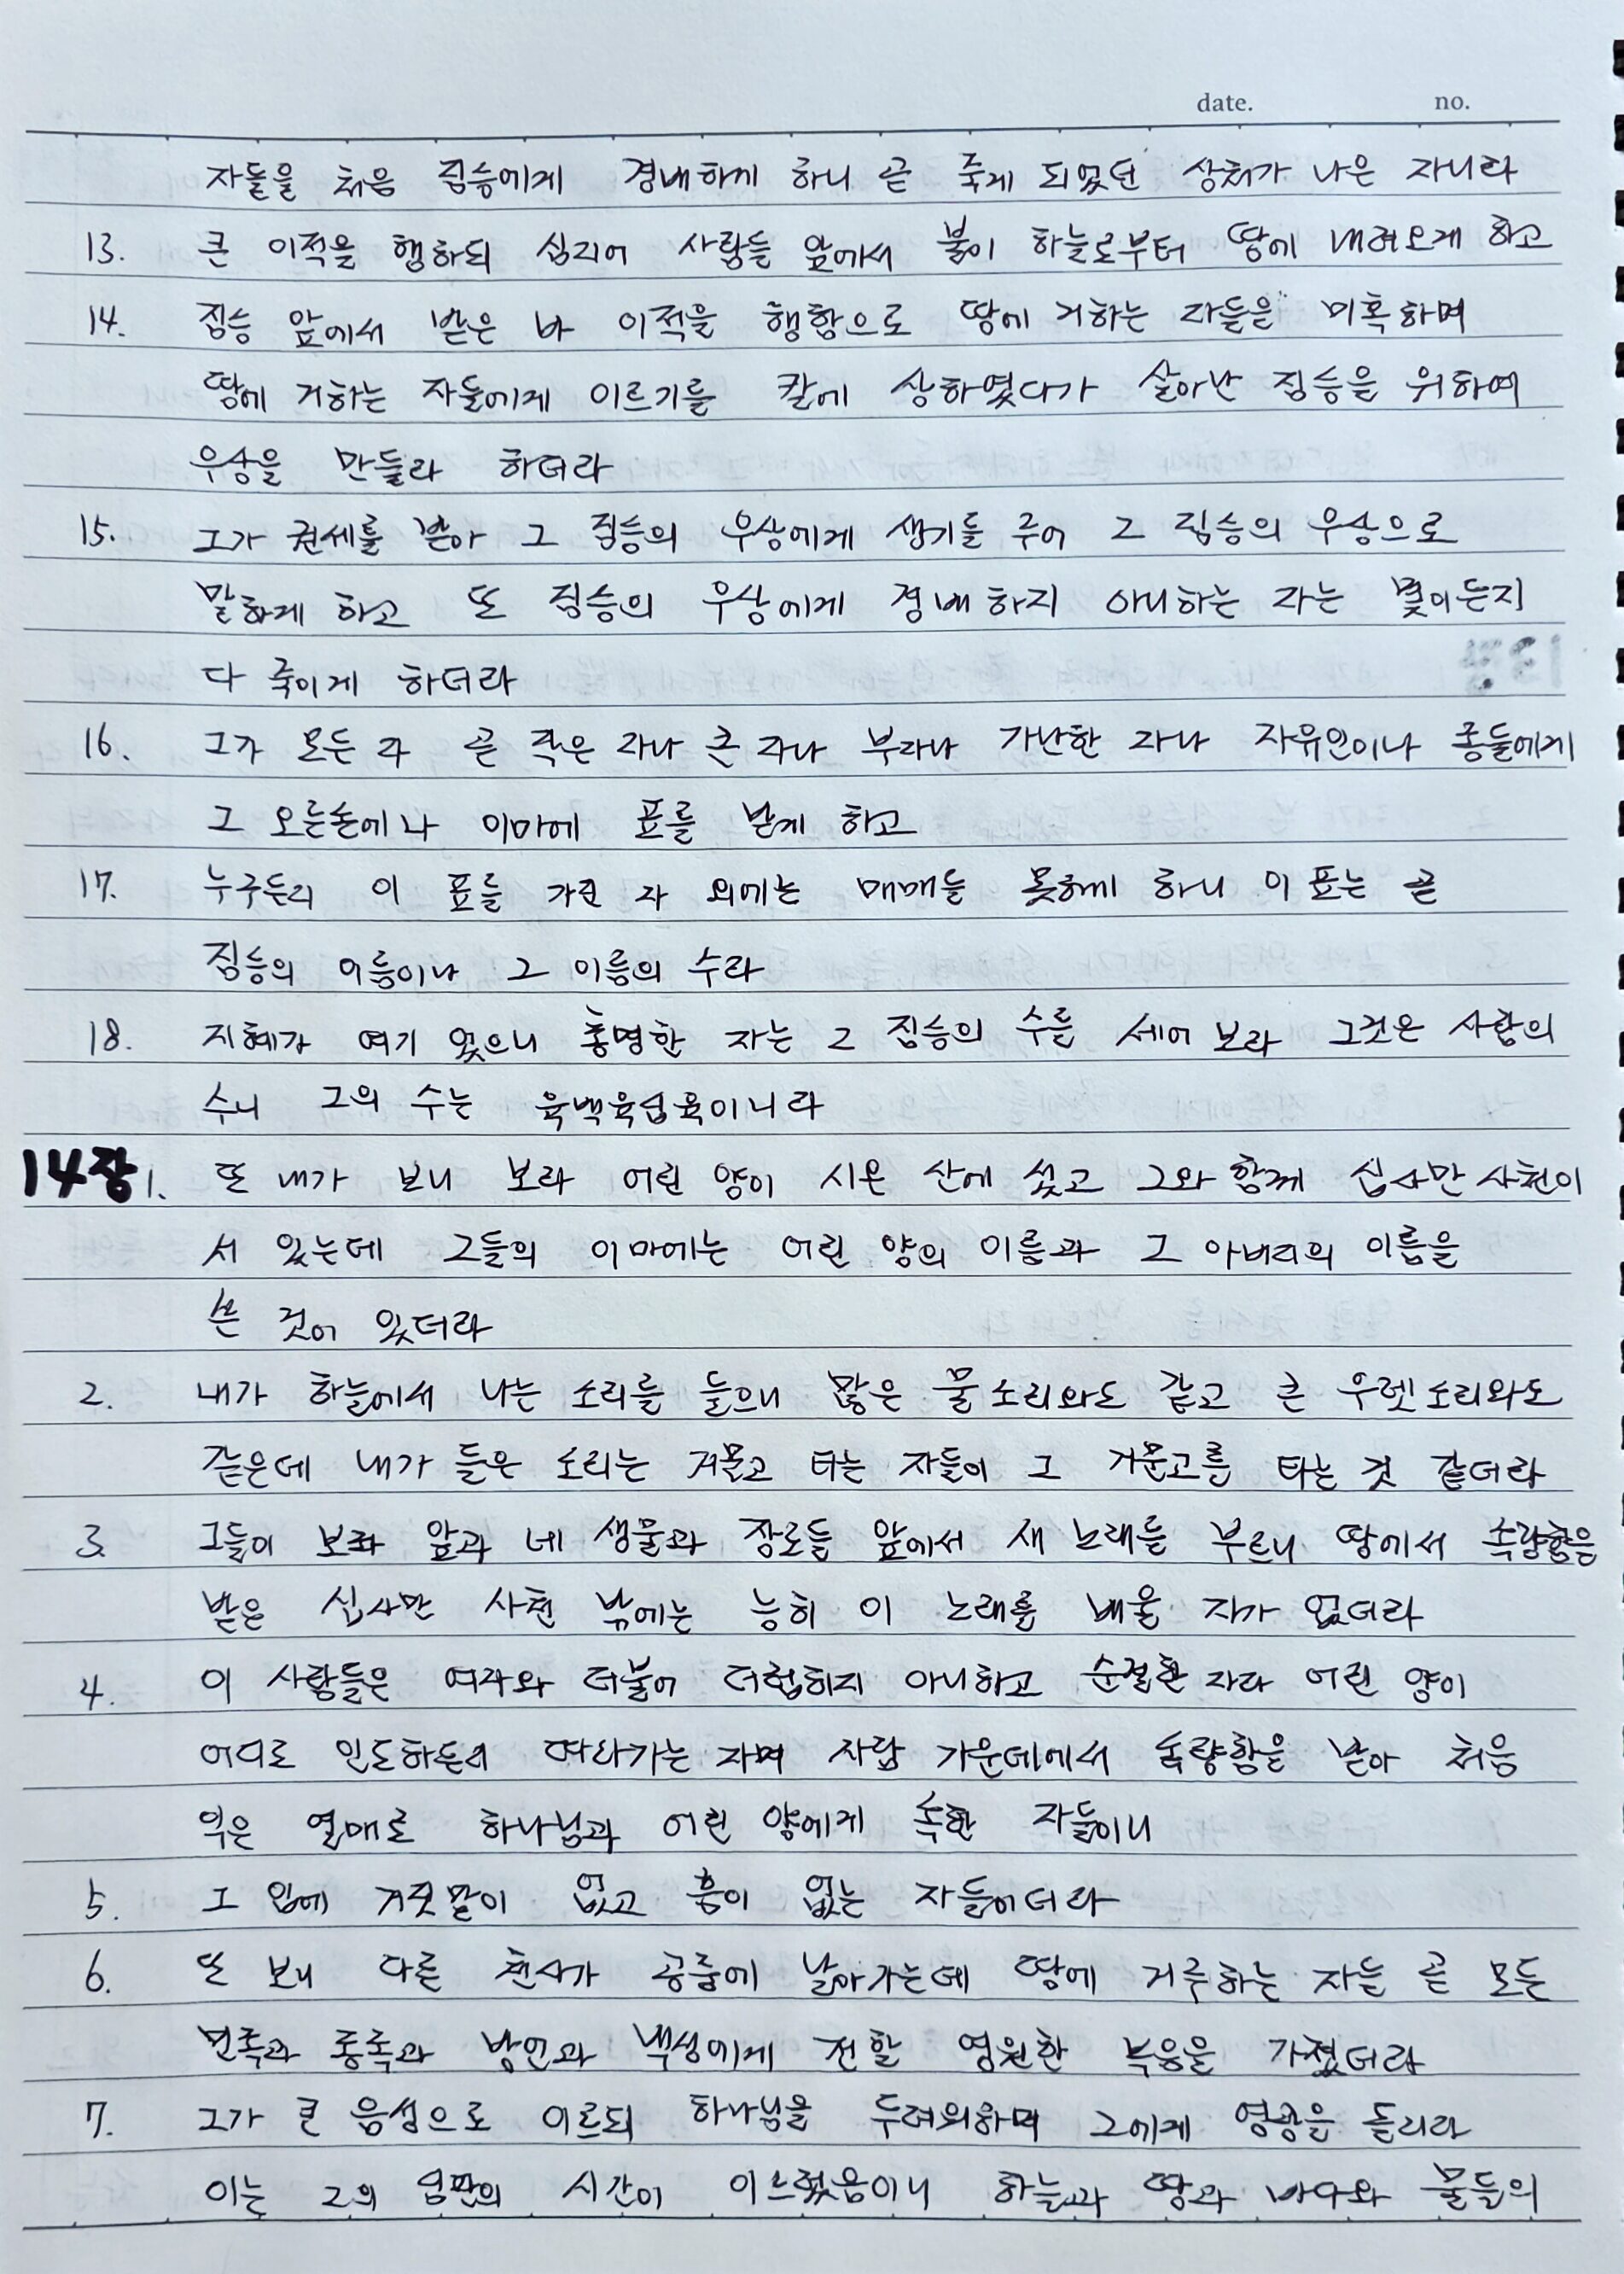 date. no.
자들을 처음 짐승에게 경배하게 하니 곧 죽게 되었던 상처가 나은 자니라
13. 큰 이적을 행하되 심지어 사람들 앞에서 불이 하늘로부터 땅에 내려오게 하고
14. 짐승 앞에서 받은 바 이적을 행함으로 땅에 거하는 자들을 미혹하며
땅에 거하는 자들에게 이르기를 칼에 상하였다가 살아난 짐승을 위하여
우상을 만들라 하더라
15. 그가 권세를 받아 그 짐승의 우상에게 생기를 주어 그 짐승의 우상으로
말하게 하고 또 짐승의 우상에게 경배하지 아니하는 자는 몇이든지
다 죽이게 하더라
16. 그가 모든 자 곧 작은 자나 큰 자나 부자나 가난한 자나 자유인이나 종들에게
그 오른손에나 이마에 표를 받게 하고
17. 누구든지 이 표를 가진 자 외에는 매매를 못하게 하니 이 표는 곧
짐승의 이름이나 그 이름의 수라
18. 지혜가 여기 있으니 총명한 자는 그 짐승의 수를 세어 보라 그것은 사람의
수니 그의 수는 육백육십육이니라
14장 1. 또 내가 보니 보라 어린 양이 시온 산에 섰고 그와 함께 십사만 사천이
서 있는데 그들의 이마에는 어린 양의 이름과 그 아버지의 이름을
쓴 것이 있더라
2. 내가 하늘에서 나는 소리를 들으니 많은 물 소리와도 같고 큰 우렛소리와도
같은데 내가 들은 소리는 거문고 타는 자들이 그 거문고를 타는 것 같더라
3. 그들이 보좌 앞과 네 생물과 장로들 앞에서 새 노래를 부르니 땅에서 속량함을
받은 십사만 사천 밖에는 능히 이 노래를 배울 자가 없더라
4. 이 사람들은 여자와 더불어 더럽히지 아니하고 순결한 자라 어린 양이
어디로 인도하든지 따라가는 자며 사람 가운데에서 속량함을 받아 처음
익은 열매로 하나님과 어린 양에게 속한 자들이니
5. 그 입에 거짓말이 없고 흠이 없는 자들이더라
6. 또 보니 다른 천사가 공중에 날아가는데 땅에 거주하는 자들 곧 모든
민족과 종족과 방언과 백성에게 전할 영원한 복음을 가졌더라
7. 그가 큰 음성으로 이르되 하나님을 두려워하며 그에게 영광을 돌리라
이는 그의 심판의 시간이 이르렀음이니 하늘과 땅과 바다와 물들의